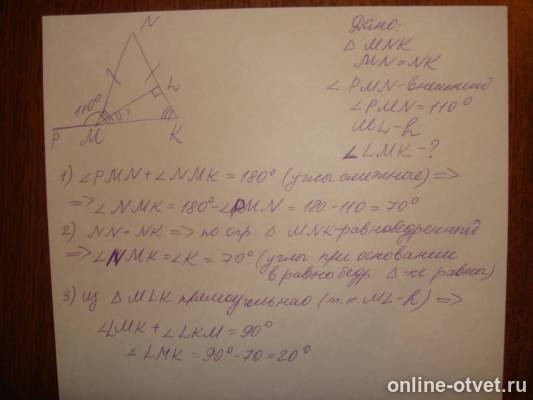 N
L
110°
?
P
M
K
Дано:
Δ MNK
MN = NK
∠ PMN - внешний
∠ PMN = 110°
ML - h
∠ LMK - ?
1) ∠PMN + ∠NMK = 180° (углы смежные) =>
=> ∠NMK = 180° - ∠PMN = 180 - 110 = 70°
2) NN = NK => по опр. Δ MNK - равнобедренный
=> ∠NMK = ∠K = 70° (углы при основании
в равнобедр. Δ-ке равны)
3) Из Δ MLK прямоугольнао (т.к. ML - h) =>
∠LMK + ∠LKM = 90°
∠LMK = 90° - 70 = 20°
online-otvet.ru